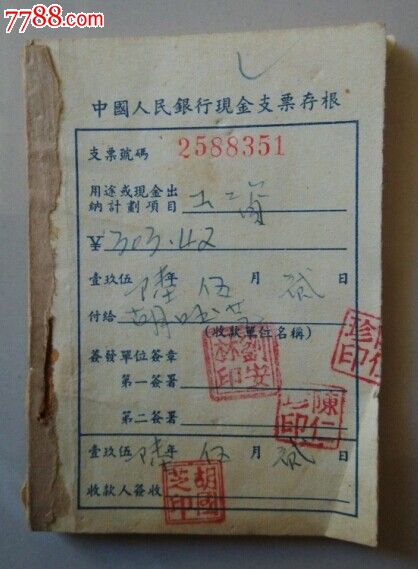 7788.com
中國人民銀行現金支票存根
支票號碼 2588351
用途或現金出
納計劃項目 工資
¥ 303.42
壹玖伍陸年伍月貳日
付給 胡國芝
(收款單位名稱)
簽發單位簽章
劉安
林印
第一簽署
陳仁
珍印
陳仁
珍印
第二簽署
壹玖伍陸年伍月貳日
收款人簽收
胡國
芝印